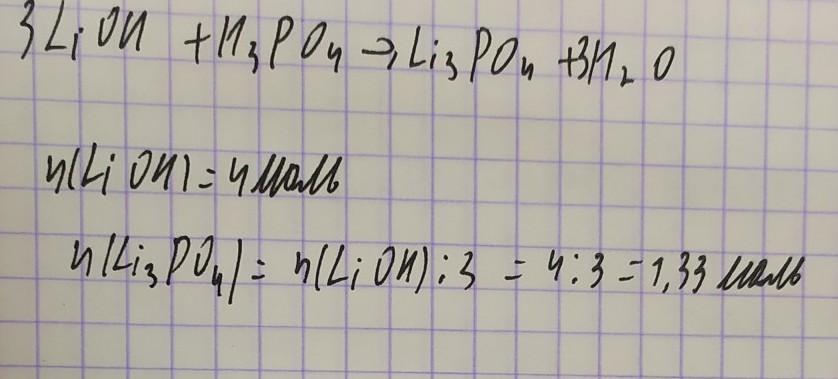 3LiOH + H₃PO₄ → Li₃PO₄ + 3H₂O
n(LiOH) = 4 моль
n(Li₃PO₄) = n(LiOH) : 3 = 4 : 3 = 1,33 моль